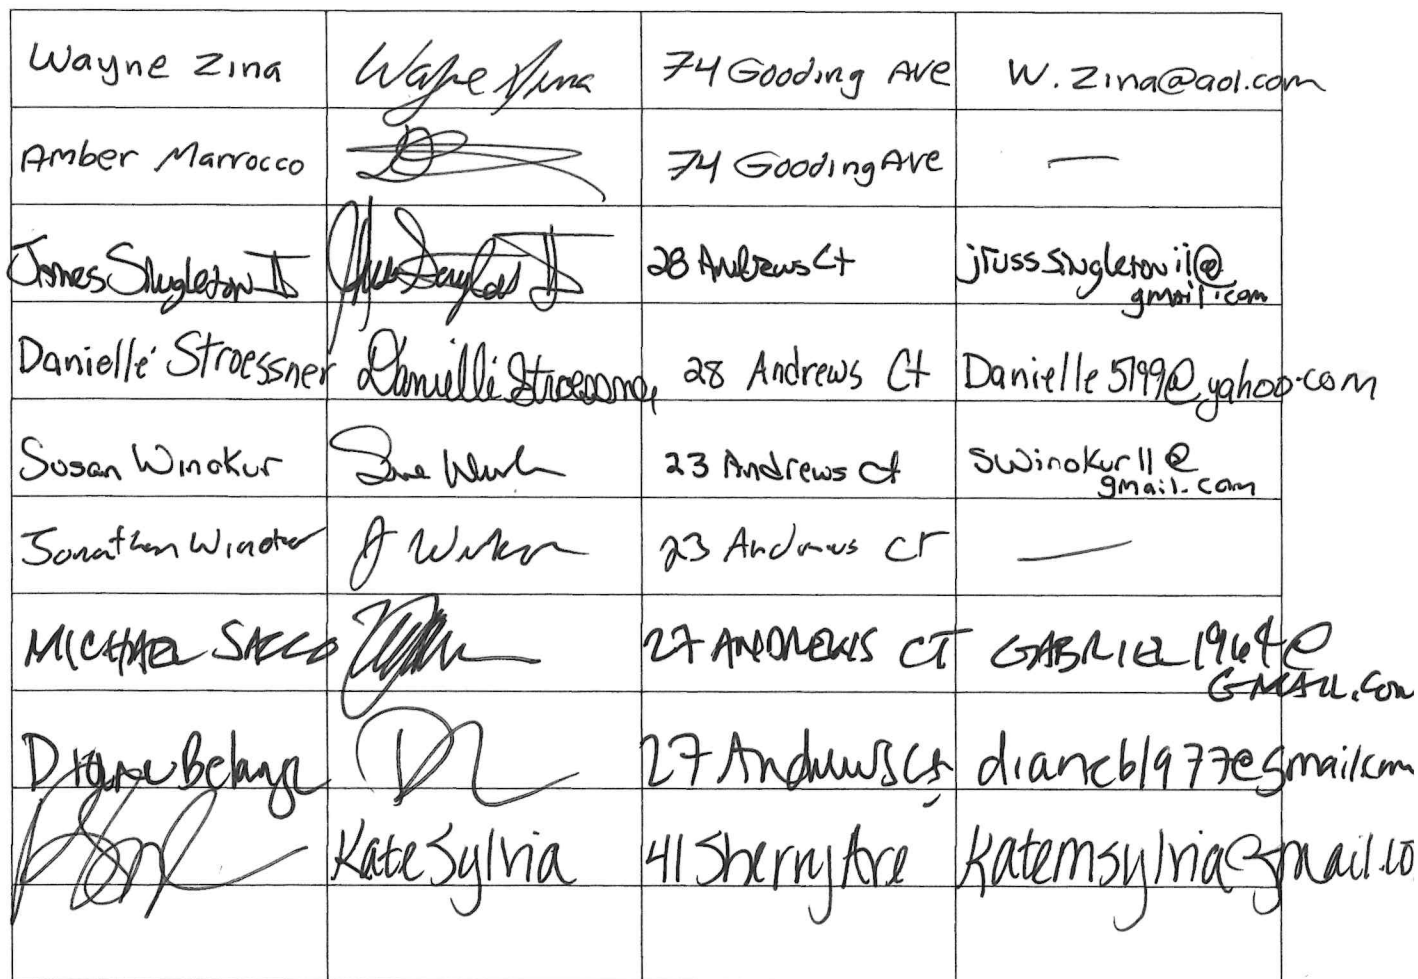 Wayne Zina Wayne Zina 74 Gooding Ave W.Zina@aol.com
Amber Marrocco 74 Gooding Ave —
James Singleton II 28 Andrews Ct jrusssingletonii@
gmail.com
Danielle Stroessner Danielle Stroessner 28 Andrews Ct Danielle5199@yahoo.com
Susan Winokur 23 Andrews Ct swinokur11@
gmail.com
Jonathan Winokur J Winokur 23 Andrews CT —
MICHAEL SACCO 27 ANDREWS CT GABRIEL1964@
GMAIL.COM
Diane Belanger 27 Andrews Ct dianeb1977@gmail.com
Kate Sylvia 41 Sherry Ave Katemsylvia@gmail.co